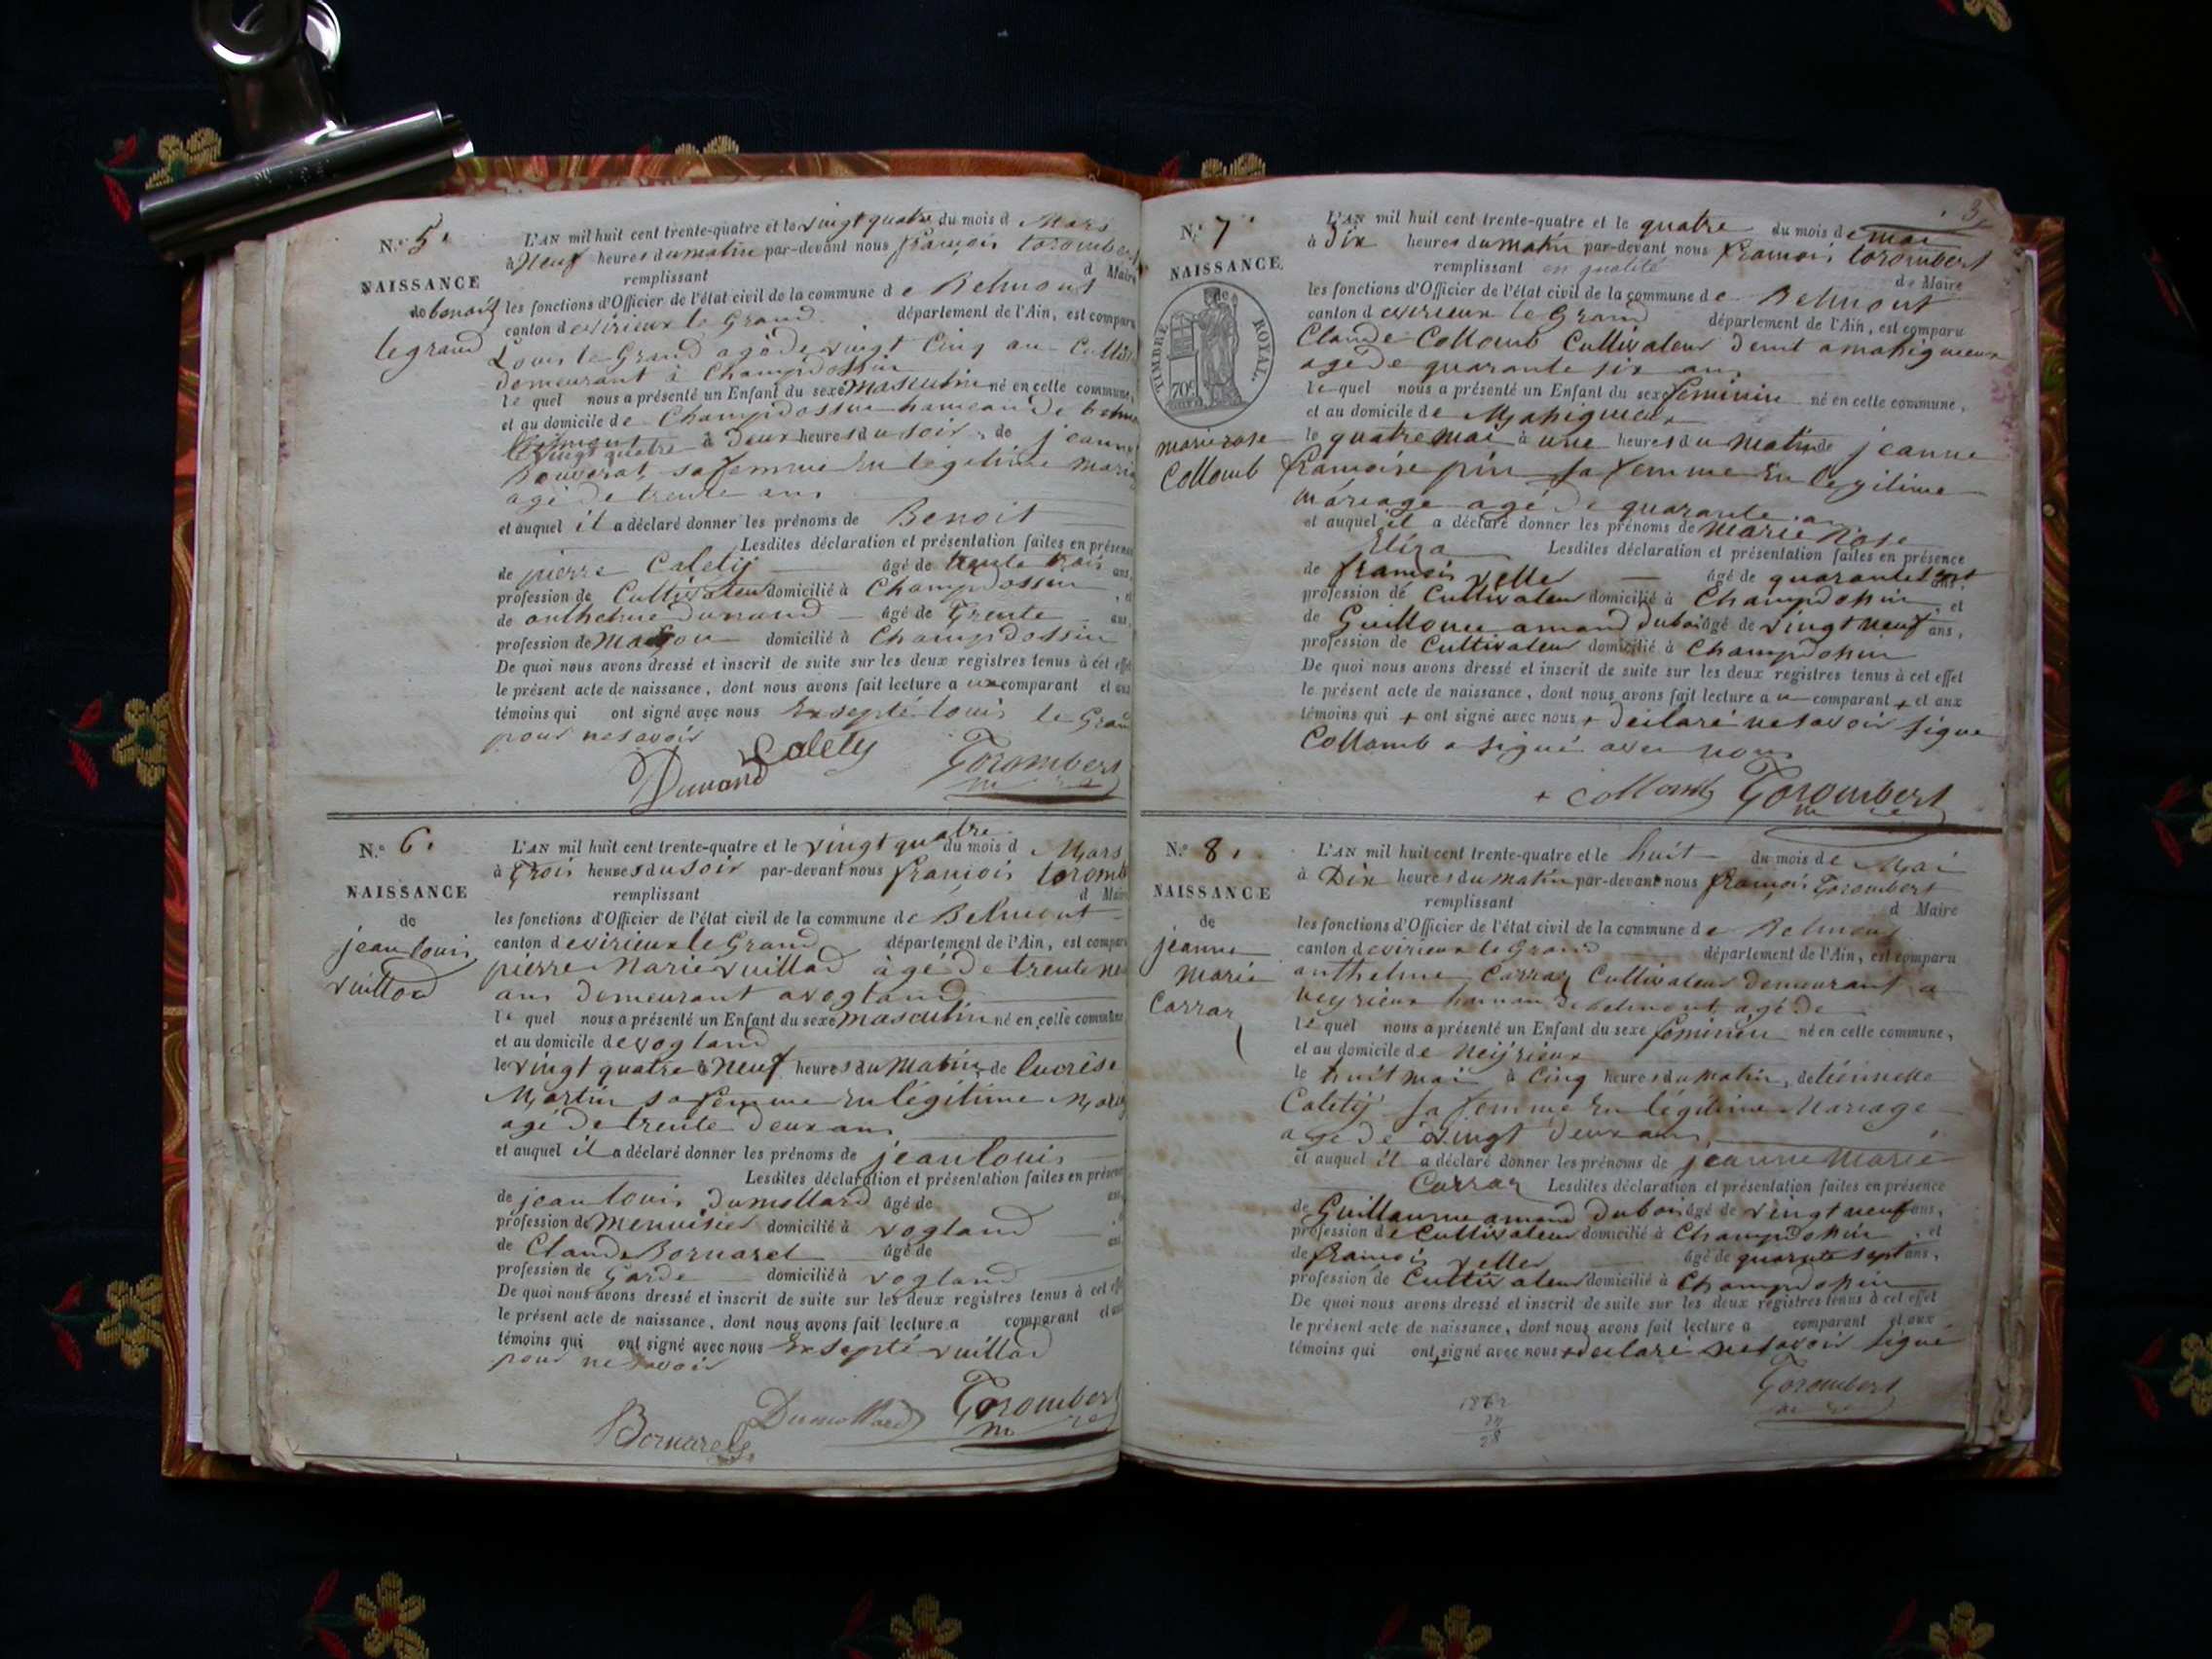 N.° 5.
NAISSANCE
de benoit
legrand
L'AN mil huit cent trente-quatre et le vingt quatre du mois d Mars
à Neuf heures du matin par-devant nous françois torombert
remplissant d Maire
les fonctions d'Officier de l'état civil de la commune de Belmont
canton de virieux le Grand département de l'Ain, est comparu
Louis le Grand agé de vingt Cinq an
demeurant à Champdossin
le quel nous a présenté un Enfant du sexe Masculin né en celle commune,
et au domicile de Champdossin hameau de
vingt quatre à Deux heures du soir, de jeanne
Bouverat, sa femme En légitime
agé de trente ans
et auquel il a déclaré donner les prénoms de Benoit
Lesdites déclaration et présentation faites en présence
de pierre Caletÿ âgé de trente trois ans,
profession de Cultivateur domicilié à Champdossin, et
de anthelme Dunand âgé de Trente ans,
profession de Maçon domicilié à Champdossin
De quoi nous avons dressé et inscrit de suite sur les deux registres tenus à cet effet
le présent acte de naissance, dont nous avons fait lecture a ux comparant et aux
témoins qui ont signé avec nous Exsepté louis le Grand
pour ne savoir
Calety
Dunand
Torombert
N.° 6.
NAISSANCE
de
jean louis
vuillod
L'AN mil huit cent trente-quatre et le vingt quatre du mois d Mars
à Trois heures du soir par-devant nous françois toromb
remplissant d Maire
les fonctions d'Officier de l'état civil de la commune de Belmont
canton de virieux le Grand département de l'Ain, est comparu
pierre Marie vuillod àgé de trente
ans demeurant a vogland
le quel nous a présenté un Enfant du sexe masculin né en celle commune
et au domicile de vogland
le vingt quatre à Neuf heures du Matin, de lucrèse
Martin sa femme En légitime
agé de trente deux ans
et auquel il a déclaré donner les prénoms de jean louis
Lesdites déclaration et présentation faites en présence
de jean louis Dumollard âgé de ans,
profession de Menuisier domicilié à vogland
de Claude Bornarel âgé de ans
profession de Garde domicilié à vogland
De quoi nous avons dressé et inscrit de suite sur les deux registres tenus à cet effet
le présent acte de naissance, dont nous avons fait lecture a comparant et aux
témoins qui ont signé avec nous Exsepté vuillod
pour ne savoir
Bornarel
Dumollard
Torombert
3
N.° 7.
NAISSANCE
de
TIMBRE ROYAL.
70c
marie rose
Collomb
L'AN mil huit cent trente-quatre et le quatre du mois de mai
à Dix heures du matin par-devant nous françois torombert
remplissant en qualité de Maire
les fonctions d'Officier de l'état civil de la commune de Belmont
canton de virieux le Grand département de l'Ain, est comparu
Claude Collomb Cultivateur
age de quarante six ans
le quel nous a présenté un Enfant du sexe feminin né en celle commune,
et au domicile de
le quatre mai à une heures du matin de jeanne
francoise pin sa femme En legitime
mariage agé de quarante an
et auquel il a déclaré donner les prénoms de Marie Rose
Eliza Lesdites déclaration et présentation faites en présence
de françois velles âgé de quarante sept ans,
profession de Cultivateur domicilié à Champdossin, et
de Guillaume amand dubois âgé de vingt neuf ans,
profession de Cultivateur domicilié à Champdossin
De quoi nous avons dressé et inscrit de suite sur les deux registres tenus à cet effet
le présent acte de naissance, dont nous avons fait lecture a u comparant + et aux
témoins qui + ont signé avec nous + déclaré ne savoir signe
Collomb a signé avec nous
+ collomb Torombert
N.° 8.
NAISSANCE
de
jeanne
Marie
Carrar
L'AN mil huit cent trente-quatre et le huit du mois de Mai
à Dix heures du matin par-devant nous françois Torombert
remplissant d Maire
les fonctions d'Officier de l'état civil de la commune de Belmont
canton de virieux le Grand département de l'Ain, est comparu
anthelme Carrar Cultivateur demeurant a
hameau de belmont agé de
le quel nous a présenté un Enfant du sexe feminin né en celle commune,
et au domicile de
le huit mai à Cinq heures du matin, de tiennette
Caletÿ sa femme En légitime Mariage
agé de vingt deux ans
et auquel il a déclaré donner les prénoms de jeanne Marie
Carrar Lesdites déclaration et présentation faites en présence
de Guillaume amand Dubois âgé de vingt neuf ans,
profession de Cultivateur domicilié à Champdossin, et
de françois velles âgé de quarante sept ans,
profession de Cultivateur domicilié à Champdossin
De quoi nous avons dressé et inscrit de suite sur les deux registres tenus à cet effet
le présent acte de naissance, dont nous avons fait lecture a comparant et aux
témoins qui ont + signé avec nous + déclaré ne savoir signé
Torombert